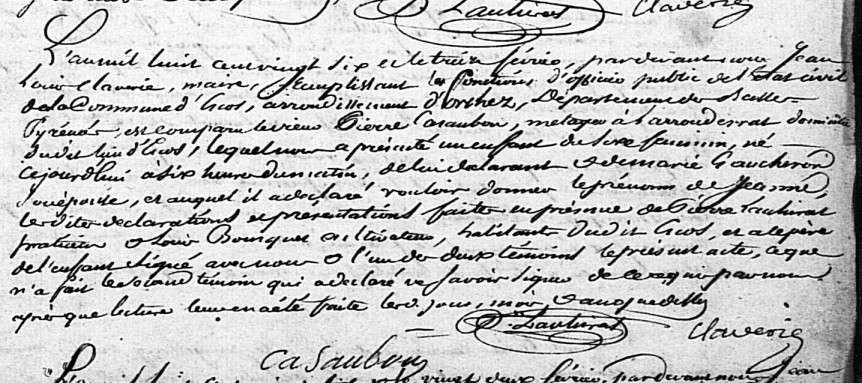 Lauhirat Claverie
L'an mil huit cent vingt six et le treize février, pardevant nous Jean
Louis Claverie, maire, remplissant les fonctions d'officier public de l'Etat civil
de la Commune d', arrondissement d'Orthez, Département des Basses=
Pyrénées, est comparu le sieur Pierre Casaubon, métayer à domicilié
dudit lieu d', lequel nous a présenté un enfant du sexe féminin, né
cejourd'hui à six heures du matin, de lui déclarant et de marie
son épouse, et auquel il a déclaré vouloir donner le prénom de Jeanne,
lesdites déclarations et présentations faites en présence de Pierre Lauhirat
et Louis Bousquet cultivateur, habitants dudit, et a le père
de l'enfant signé avec nous et l'un des deux témoins le présent acte, ce que
n'a fait le second témoin qui a déclaré ne savoir signer de ce requis par nous
après que lecture leur en a été faite lesd. jour, mois, et an que dessus
Lauhirat Claverie
Casaubon
L'an mil huit cent vingt six et le vingt deux février, pardevant nous Jean